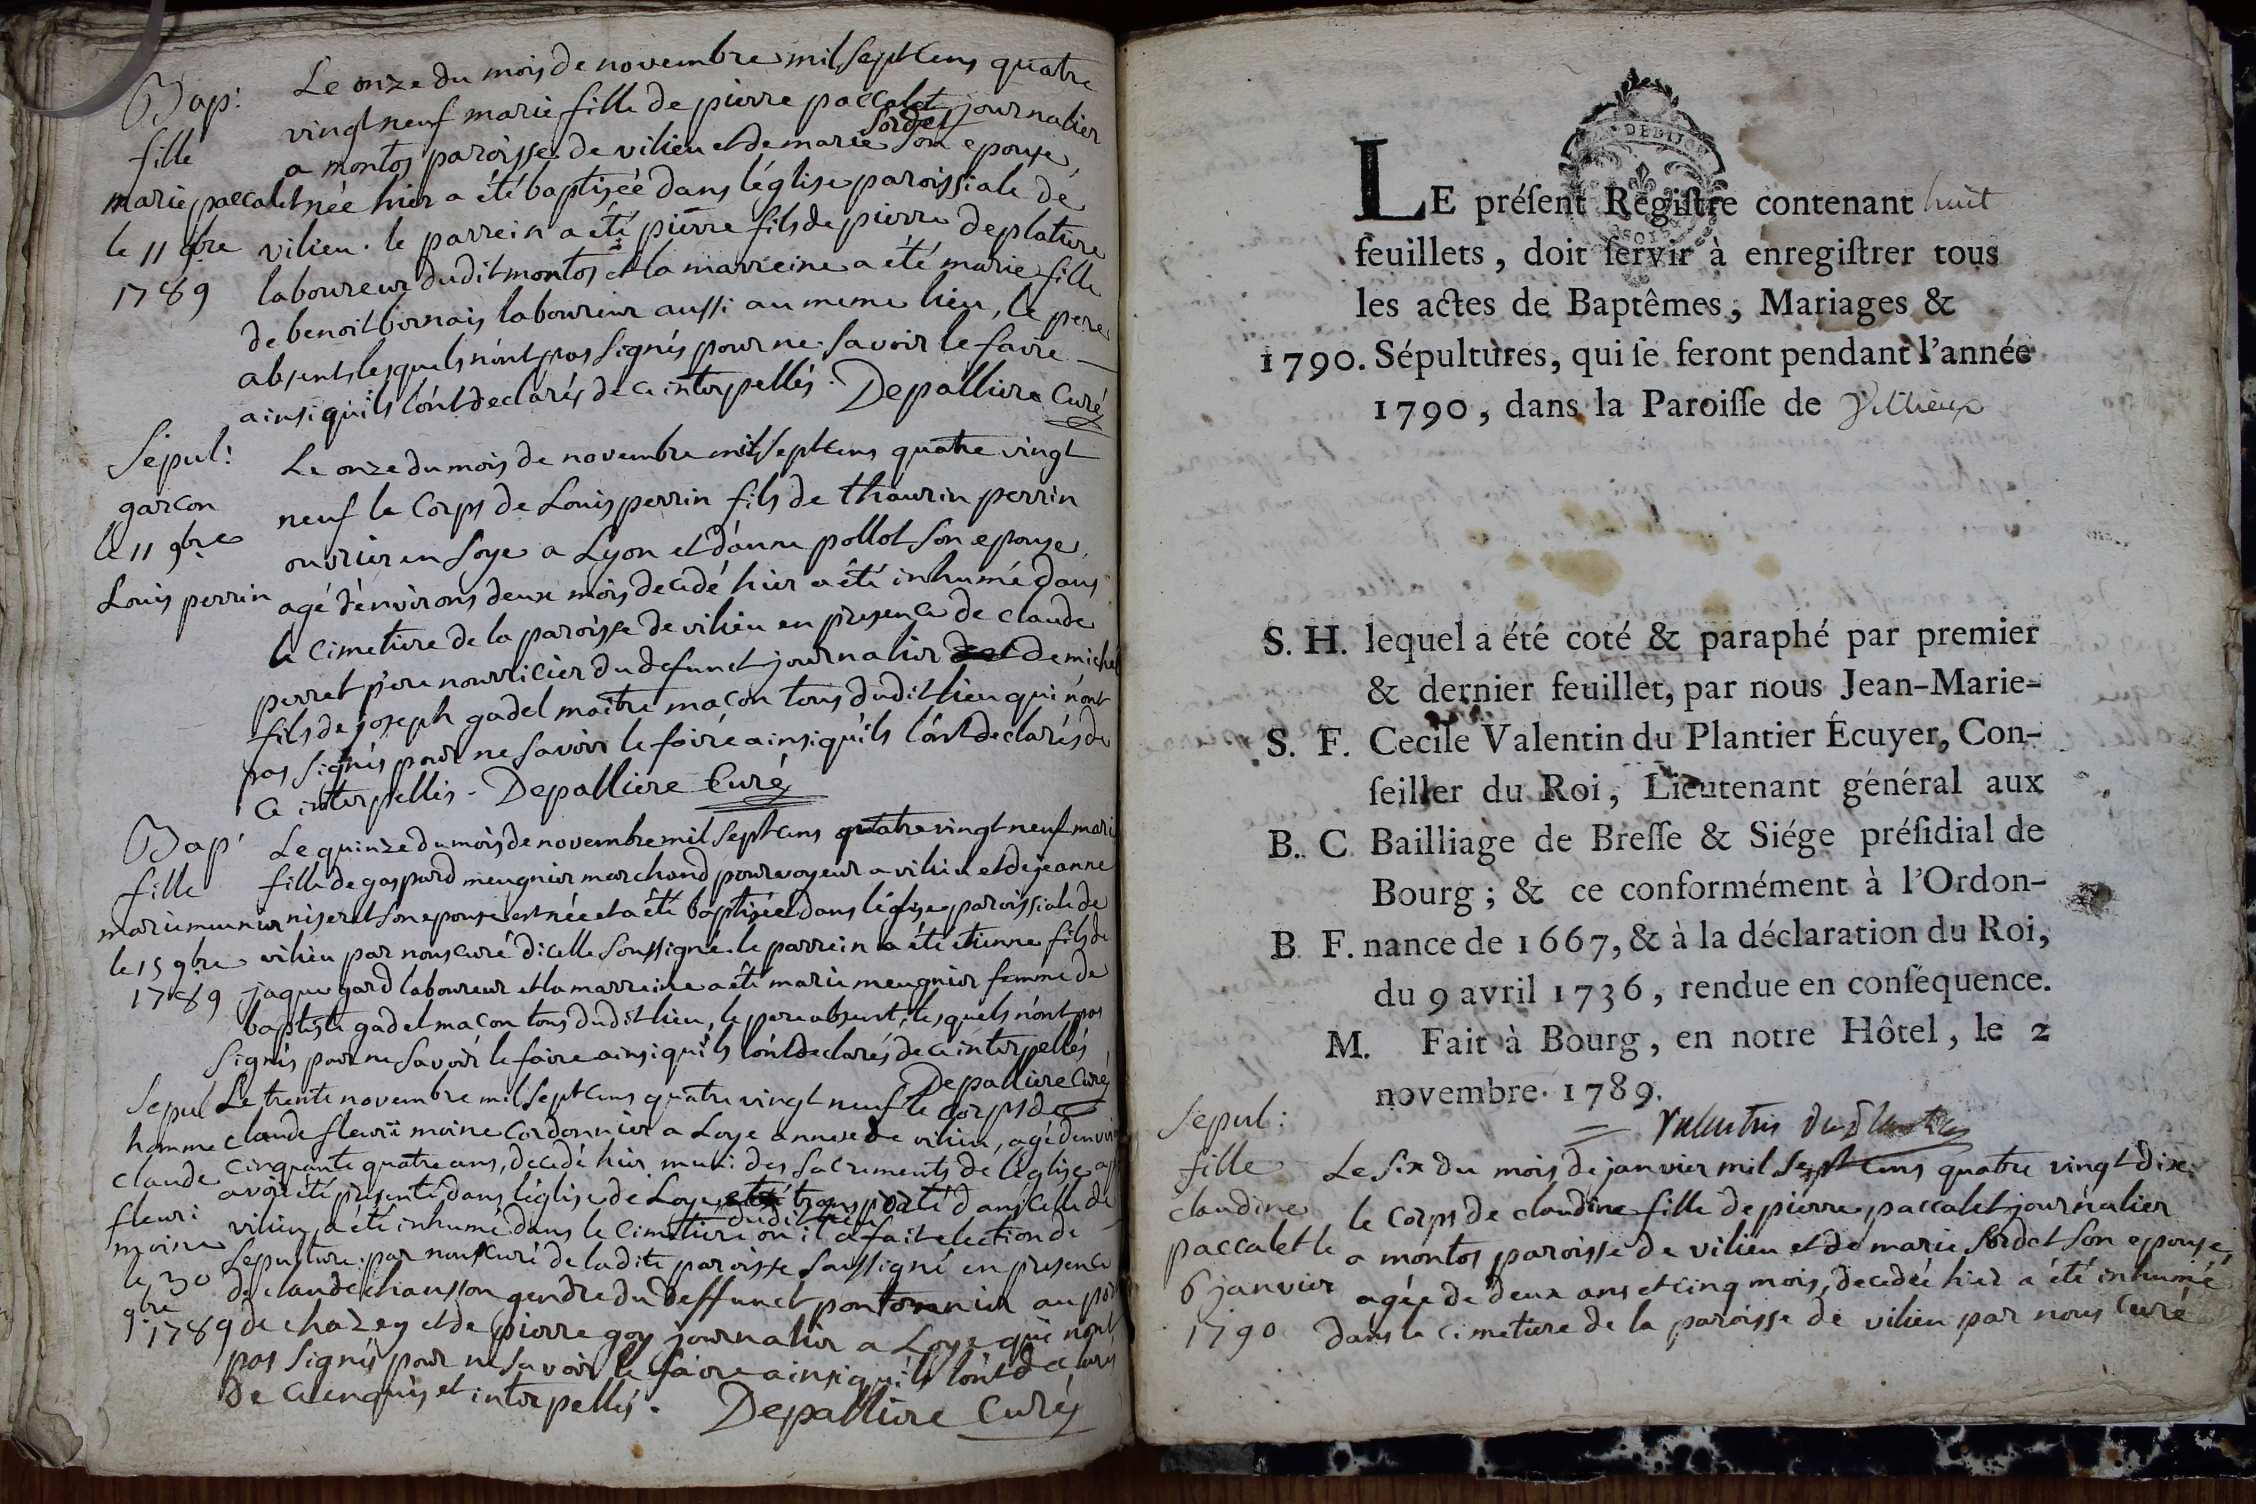 Bap:
fille
marie paccalet
le 11 9bre
1789
Le onze du mois de novembre mil sept cens quatre
vingt neuf marie fille de pierre paccalet journalier
a montos paroisse de vilieu et de marie sordet son epouse,
née hier a été baptisée dans l'église paroissiale de
vilieu. le parrein a été pierre fils de pierre deplature
laboureur dudit montos et la marreine a été marie fille
de benoit bornais laboureur aussi au meme lieu, le pere
absent, lesquels n'ont pas signés pour ne savoir le faire
ainsi qu'ils l'ont declarés de ce interpellés. Depalliere Curé
Sepul:
garcon
le 11 9bre
Louis perrin
Le onze du mois de novembre mil sept cens quatre vingt
neuf le Corps de Louis perrin fils de thaurin perrin
ouvrier en soye a Lyon et d'anne pollot son epouse,
agé d'environs deux mois decedé hier a été inhumé dans
le Cimetiere de la paroisse de vilieu en presence de claude
perret pere nourricier du defunct journalier et de michel
fils de joseph gadel maitre macon tous dudit lieu qui n'ont
pas signés pour ne savoir le faire ainsi qu'ils l'ont declarés de
ce interpellés. Depalliere Curé
Bap:
fille
marie munier
le 15 9bre
1789
Le quinze du mois de novembre mil sept cens quatre vingt neuf marie
fille de gaspard meugnier marchand pourvoyeur a vilieu et de jeanne
niseret son epouse est née et a été baptisée dans l'église paroissiale de
vilieu par nous curé d'icelle soussigné. le parrein a été etienne fils de
jaque gard laboureur et la marreine a été marie meugnier femme de
baptiste gadel macon tous dudit lieu, le pere absent, lesquels n'ont pas
signés pour ne savoir le faire ainsi qu'ils l'ont declarés de ce interpellés
Depalliere Curé
Sepul
homme
claude
fleuri
moine
le 30
9bre
1789
Le trente novembre mil sept cens quatre vingt neuf le corps de
claude fleuri moine Cordonnier a Loye annexe de vilieu, agé d'environ
cinquante quatre ans, decedé hier muni des sacrements de l'église
avoir été presenté dans l'église de Loye, transporté dans celle de
vilieu, a été inhumé dans le Cimetiere dudit lieu ou il a fait election de
sepulture. par nous curé de ladite paroisse soussigné en presence
de claude chausson gendre du deffunct pontonnier au port
de chazey et de pierre goy journalier a Loye qui n'ont
pas signés pour ne savoir le faire ainsi qu'ils l'ont declarés
de ce enquis et interpellés. Depalliere Curé
DE DIJON
LE préſent Regiſtre contenant huit
feuillets, doit ſervir à enregiſtrer tous
les actes de Baptêmes, Mariages &
1790. Sépultures, qui ſe feront pendant l'année
1790, dans la Paroiſſe de Villieux
S. H. lequel a été coté & paraphé par premier
& dernier feuillet, par nous Jean-Marie-
S. F. Cecile Valentin du Plantier Écuyer, Con-
ſeiller du Roi, Lieutenant général aux
B. C Bailliage de Breſſe & Siége préſidial de
Bourg ; & ce conformément à l'Ordon-
B F. nance de 1667, & à la déclaration du Roi,
du 9 avril 1736, rendue en conſéquence.
M. Fait à Bourg, en notre Hôtel, le 2
novembre. 1789.
Valentin du Plantier
Sepul:
fille
claudine
paccalet le
6 janvier
1790
Le six du mois de janvier mil sept cens quatre vingt dix.
le corps de claudine fille de pierre paccalet journalier
a montos paroisse de vilieu et de marie sordet son epouse,
agée de deux ans et cinq mois, decedée hier a été inhumé
dans le cimetiere de la paroisse de vilieu par nous curé